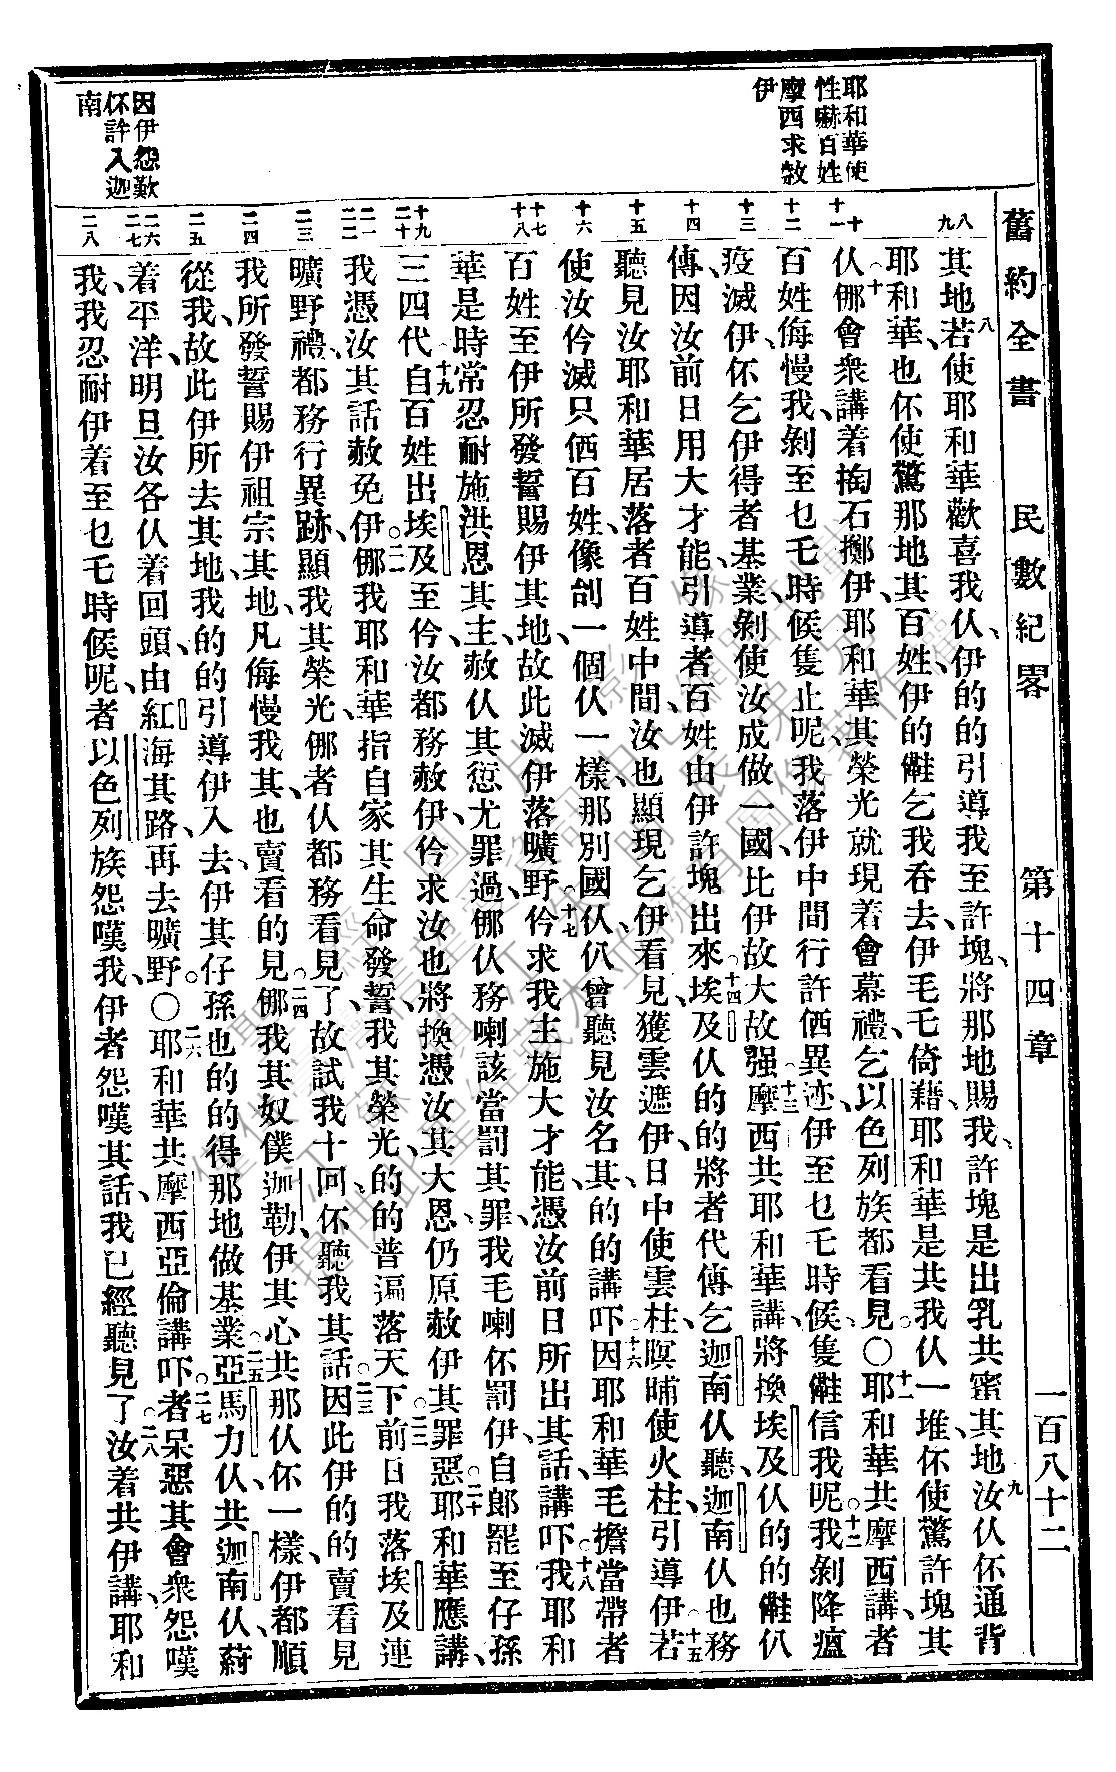 舊約全書 民數紀畧 第十四章 一百八十二
耶和華使
性嚇百姓
摩西求救
伊
因伊怨歎
伓許入迦
南
八 九 十 十一 十二 十三 十四 十五 十六 十七 十八 十九 二十 二一 二二 二三 二四 二五 二六 二七 二八
其地、八若使耶和華歡喜我仈、伊的的引導我至許塊、將那地賜我、許塊是出乳共蜜其地、九汝仈伓通背
耶和華、也伓使驚那地其百姓、伊的儺乞我吞去、伊毛乇倚藉、耶和華是共我仈一堆、伓使驚許塊其
仈。十㑚會衆講、着掏石擲伊、耶和華其榮光就現着會幕禮、乞以色列族都看見。○十一耶和華共摩西講、者
百姓侮慢我、剝至乜乇時候隻止呢、我落伊中間行許𠍲異迹、伊至乜乇時候隻儺信我呢。十二我剝降瘟
疫滅伊、伓乞伊得者基業、剝使汝成做一國、比伊故大故强。十三摩西共耶和華講、將換埃及仈的的儺仈
傳、因汝前日用大才能、引導者百姓由伊許塊出來。十四埃及仈的的將者代傳乞迦南仈聽、迦南仈也務
聽見汝耶和華居落者百姓中間、汝也顯現乞伊看見、獲雲遮伊、日中使雲柱、暝晡使火柱、引導伊。十五若
使汝伶滅只𠍲百姓、像刣一個仈一樣、那別國仈仈曾聽見汝名其、的的講吓、十六因耶和華毛擔當帶者
百姓至伊所發誓賜伊其地、故此滅伊落曠野。十七伶求我主施大才能、憑汝前日所出其話、講吓、十八我耶和
華是時常忍耐施洪恩其主、赦仈其愆尤罪過、㑚仈務喇該當罰其罪、我毛喇伓罰伊、自郎罷至仔孫
三四代。十九自百姓出埃及至伶、汝都務赦伊、伶求汝也將換憑汝其大恩、仍原赦伊其罪惡。二十耶和華應講、
我憑汝其話赦免伊。二一㑚我耶和華指自家其生命發誓、我其榮光、的的普遍落天下。二二前日我落埃及連
曠野禮、都務行異跡、顯我其榮光、㑚者仈都務看見了、故試我十回、伓聽我其話、二三因此伊的的賣看見
我所發誓賜伊祖宗其地、凡侮慢我其、也賣看的見。二四㑚我其奴僕迦勒、伊其心共那仈伓一樣、伊都順
從我、故此伊所去其地、我的的引導伊入去、伊其仔孫也的的得那地做基業。二五亞馬力仈共迦南仈、蒔
着平洋、明旦汝各仈着回頭、由紅海其路、再去曠野。○二六耶和華共摩西亞倫講吓、二七者呆惡其會衆怨嘆
我、我忍耐伊着至乜乇時候呢、者以色列族怨嘆我、伊者怨嘆其話、我已經聽見了。二八汝着共伊講、耶和